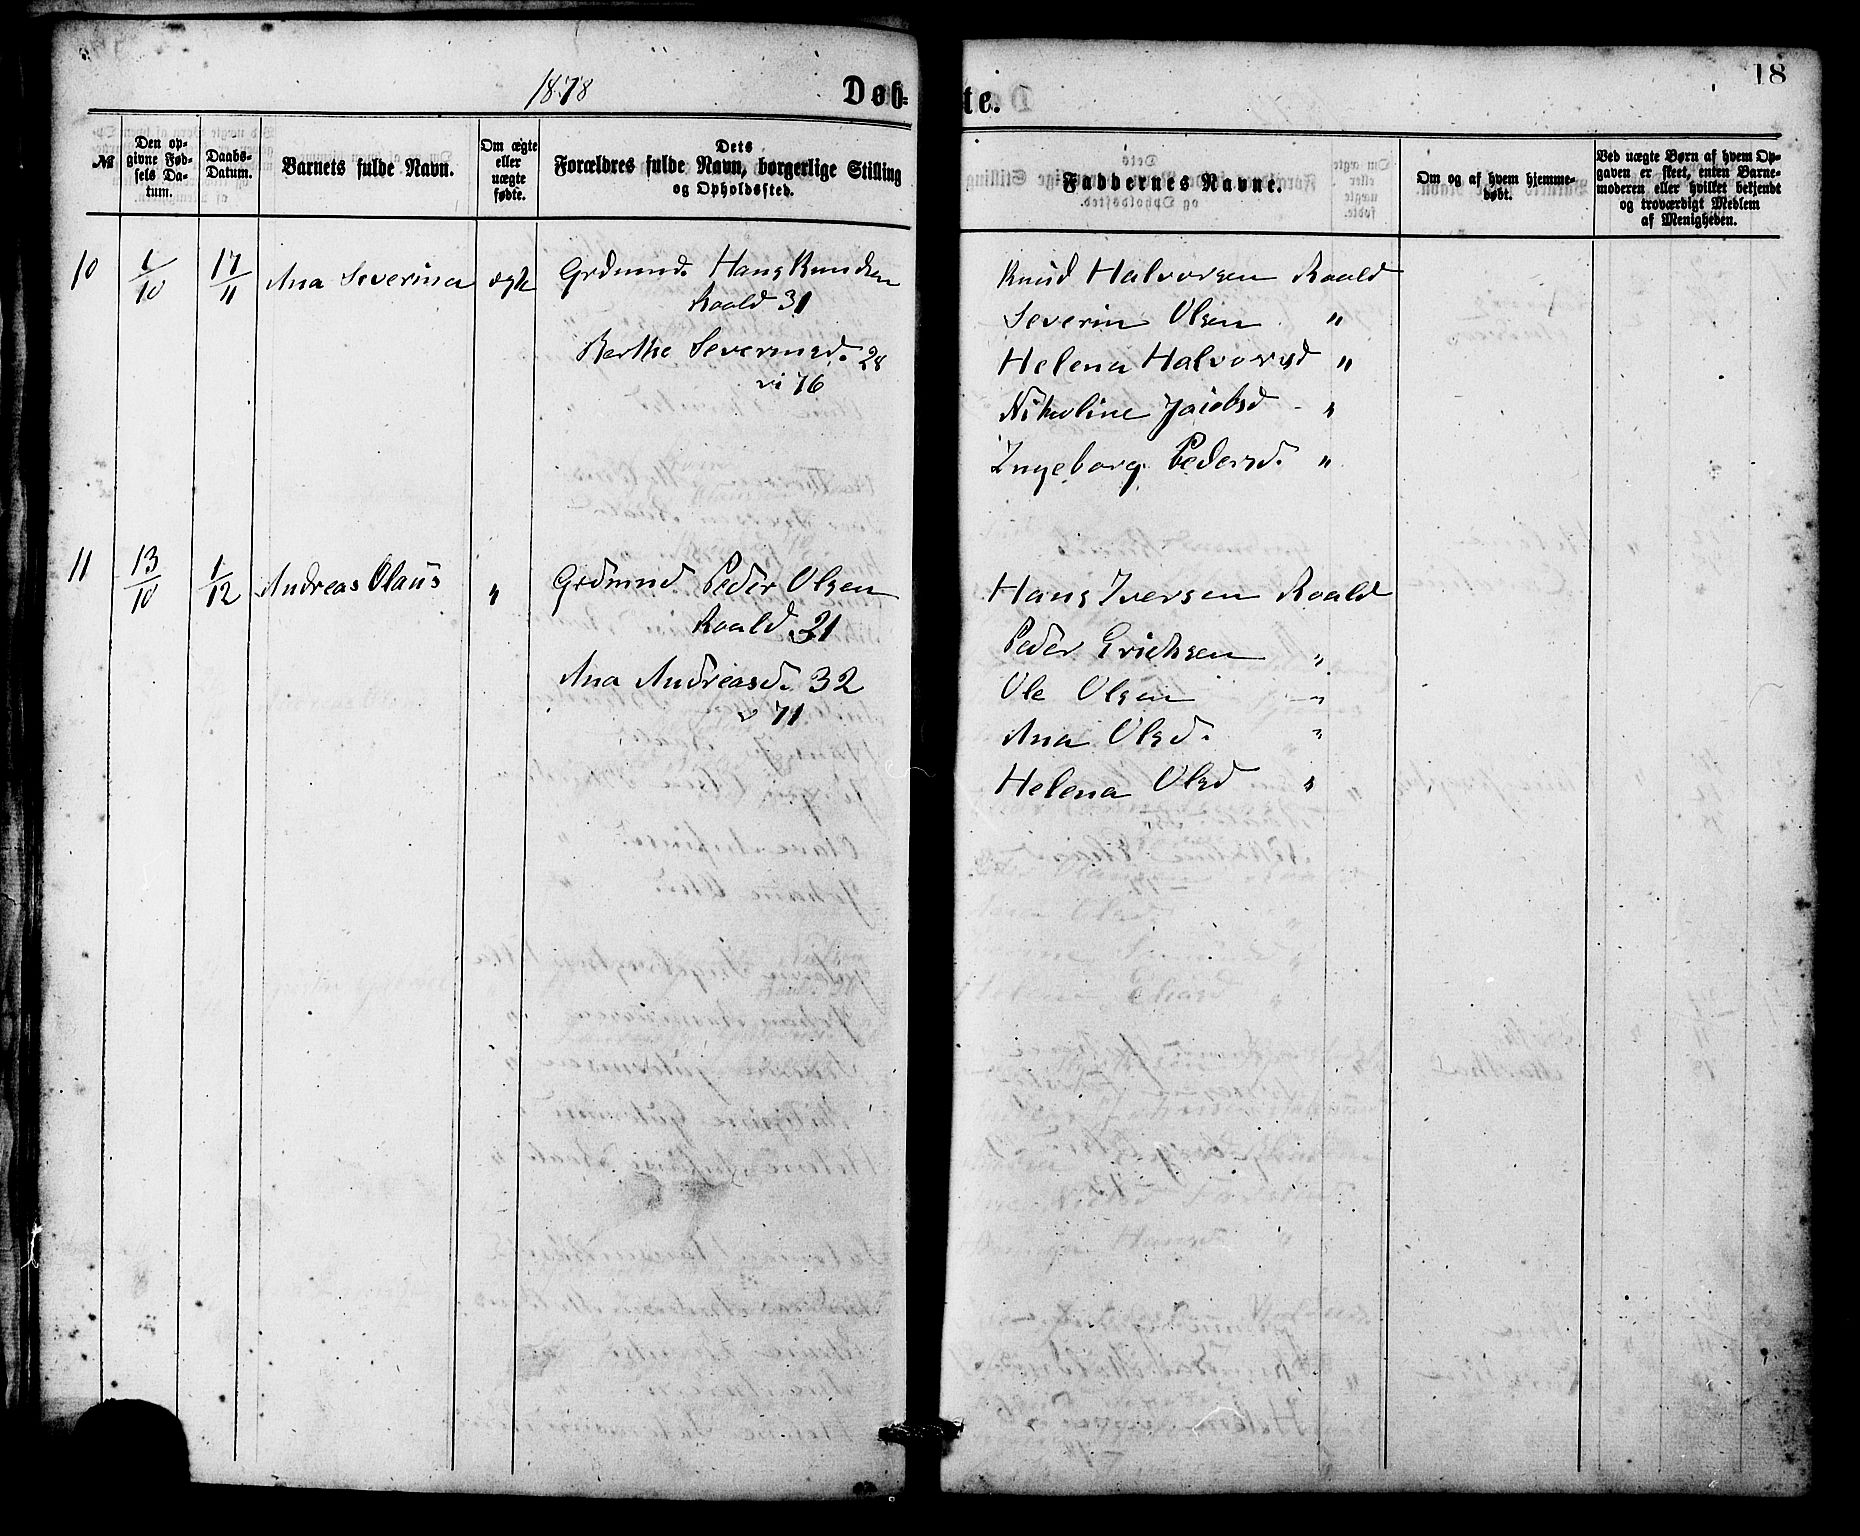 18
1878
Døb-
te.
№
Den op-
givne Fød-
sels Da-
tum.
Daabs-
Datum.
Barnets fulde Navn.
Om ægte
eller
uægte
fødte.
Dets
Forældres fulde Navn, borgerlige Stilling
og Opholdssted.
Faddernes Navne.
Om og af hvem hjemme-
døbt.
Ved uægte Børn af hvem Op-
gaven er skeet, enten Barne-
moderen eller hvilket bekjendt
og troværdigt Medlem
af Menigheden.
10
6/10
17/11
Ana Severina
ægte
Grdmnd. Hans Knudsen
Roald 31
Berthe Severinsd. 28
vi 76
Knud Halvorsen Roald
Severin Olsen "
Helena Halvorsd "
Nikoline Jacobsd - "
Ingeborg Pedersd. "
11
13/10
1/12
Andreas Olaus
"
Grdmnd Peder Olsen
Roald 31
Ana Andreasd. 32
v 71
Hans Iversen Roald
Peder Ericksen "
Ole Olsen "
Ana Olsd. "
Helena Olsd "